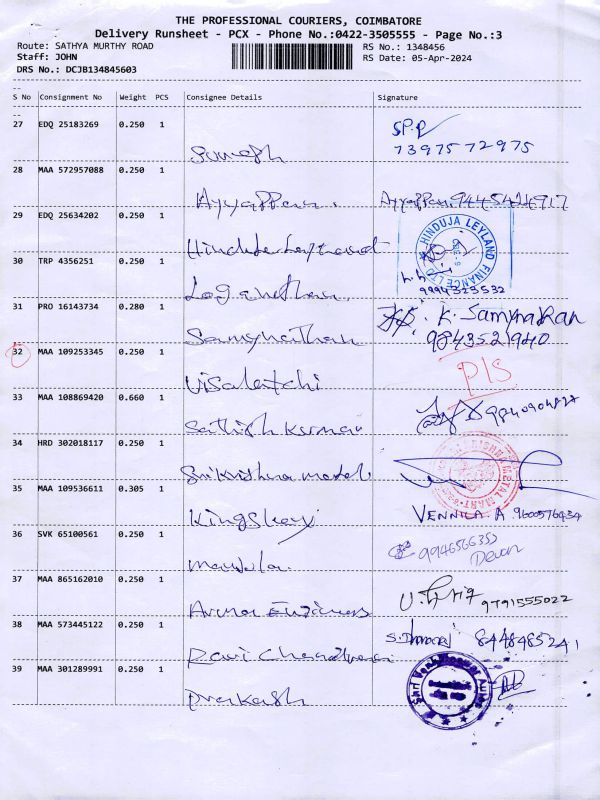 THE PROFESSIONAL COURIERS, COIMBATORE
Delivery Runsheet - PCX - Phone No.:0422-3505555 - Page No.:3
Route: SATHYA MURTHY ROAD RS No.: 1348456
Staff: JOHN RS Date: 05-Apr-2024
DRS No.: DCJB134845603
S No Consignment No Weight PCS Consignee Details Signature
27 EDQ 25183269 0.250 1
S.P.P
Sumesh 7397572975
28 MAA 572957088 0.250 1
Ayyappan. Ayyappan
29 EDQ 25634202 0.250 1
HINDUJA LEYLAND FINANCE LTD
Hinduja Leyland
30 TRP 4356251 0.250 1
Loganathan
31 PRO 16143734 0.280 1
K. Samynathan
Samynathan 9843521940
32 MAA 109253345 0.250 1
P/S
Visalatchi
33 MAA 108869420 0.660 1
Sathish Kumar
34 HRD 302018117 0.250 1
Sri Krishna metal
35 MAA 109536611 0.305 1
Kingsley VENNILA. A 9600576434
36 SVK 65100561 0.250 1
Devan
37 MAA 865162010 0.250 1
9791555022
38 MAA 573445122 0.250 1
S. Dhanaraj 8448485241
Ravi Chandran
39 MAA 301289991 0.250 1
Prakash